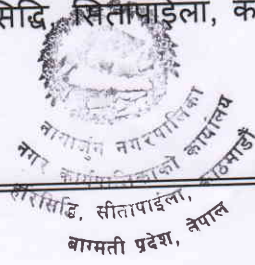 सिद्धि, सितापाईला, क
नागार्जुन नगरपालिका
नगर कार्यपालिकाको कार्यालय
हरिसिद्धि, सीतापाइला, काठमाडौं
बागमती प्रदेश, नेपाल